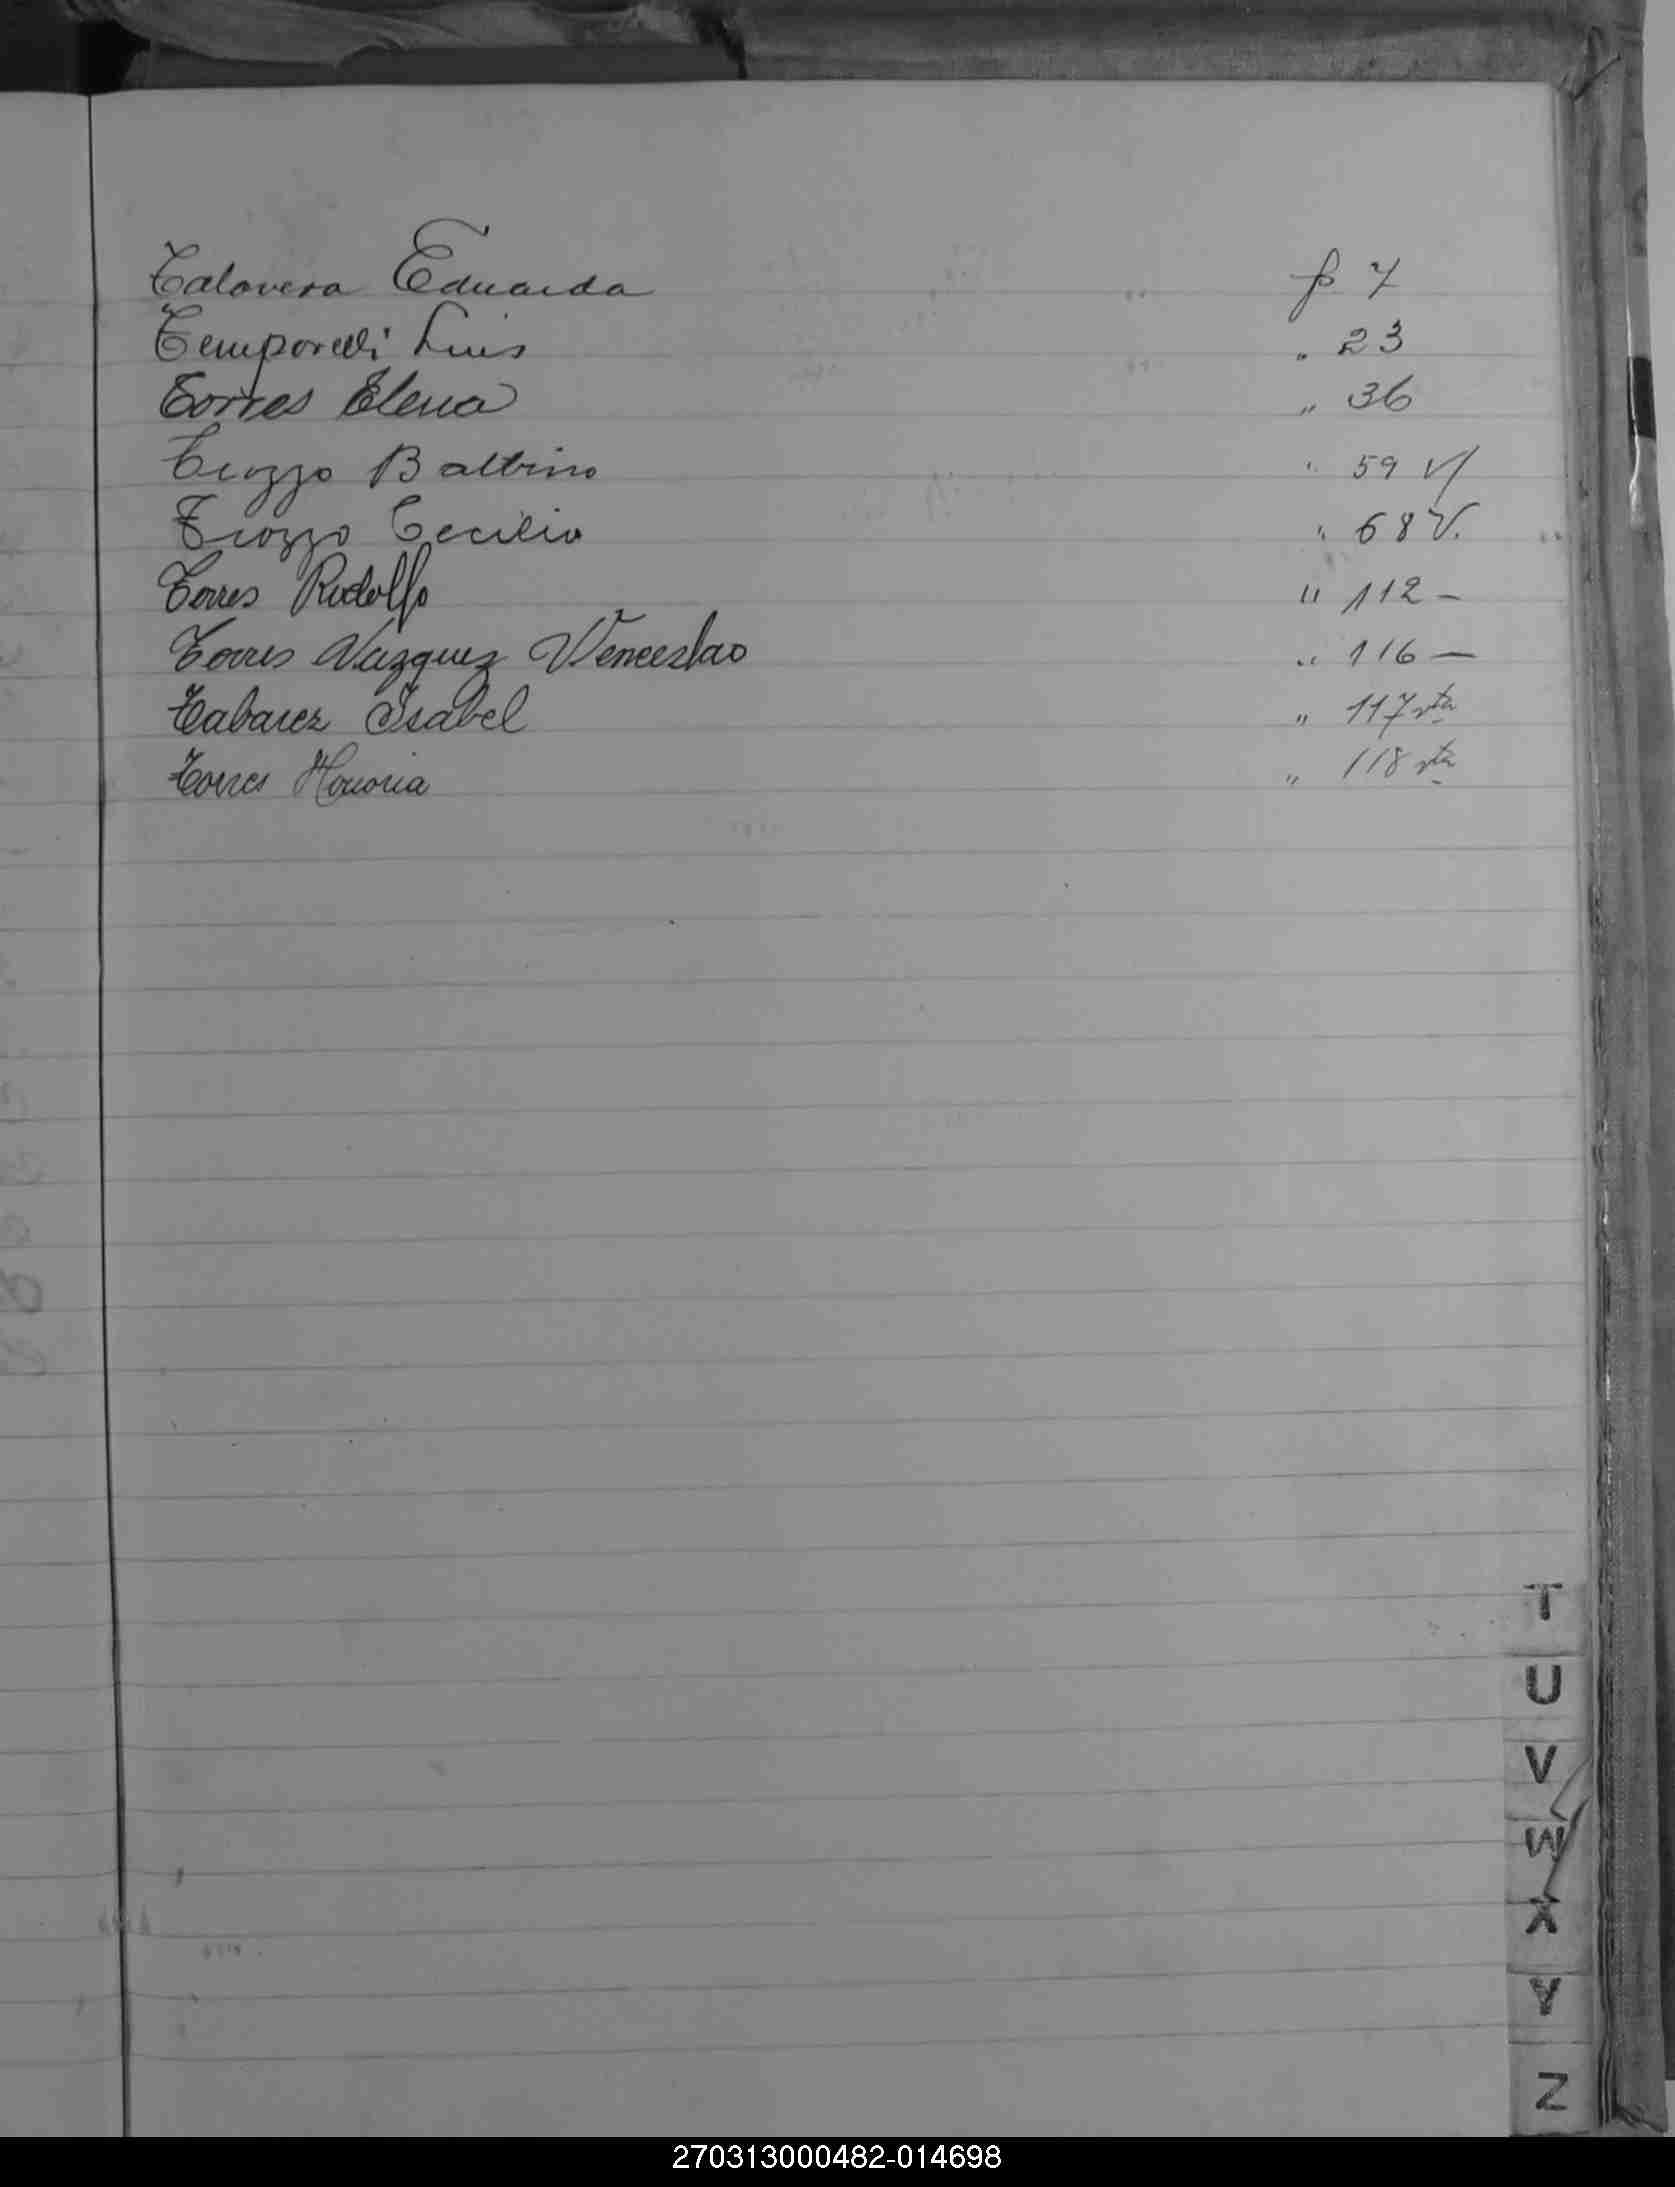 Talavera Eduarda fo 7
Temporelli Luis " 23
Torres Elena " 36
Trozzo Balbino " 59 v/
Trozzo Cecilio " 68 V.
Torres Rodolfo " 112 -
Torres Vazquez Venceslao " 116 —
Tabarez Isabel " 117 vta
Torres Honoria " 118 vta
T
U
V
W
X
Y
Z
270313000482-014698